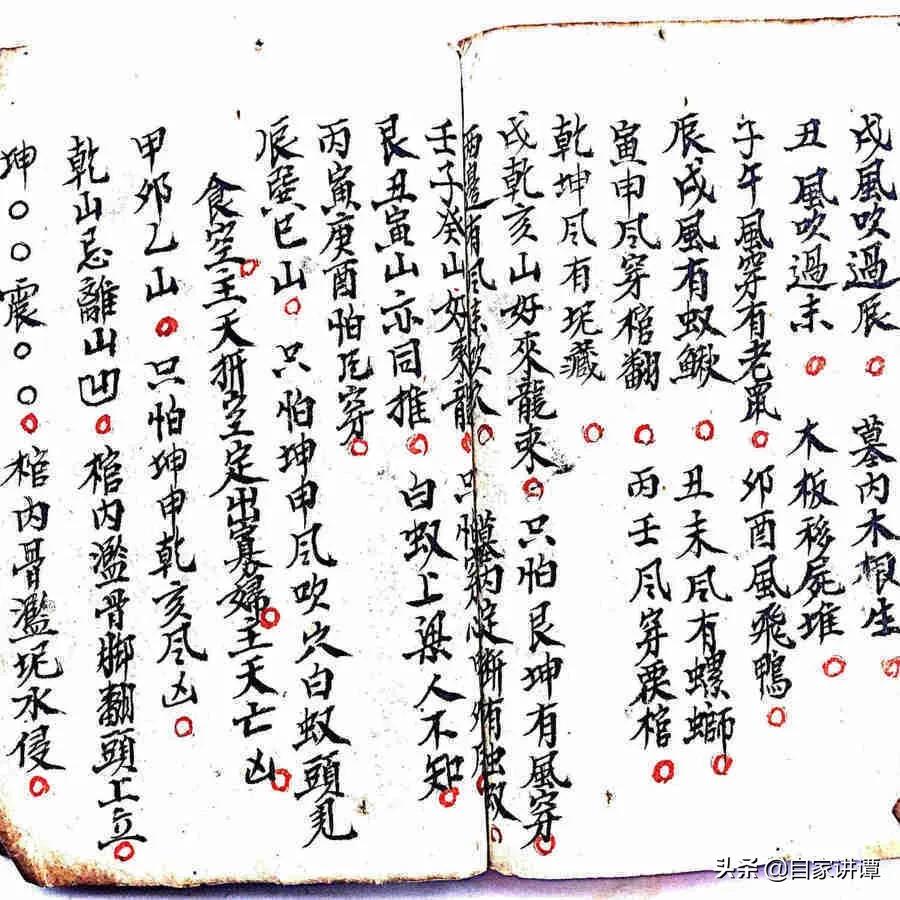 戌風吹過辰 墓內木根生
丑風吹過未 木板移屍堆
子午風穿有老鼠 卯酉風飛鴨
辰戌風有蚁鰍 丑未凨有螺螄
寅申凨穿棺翻 丙壬凨穿棺
乾坤凨有坭藏
戌乾亥山好來龍來 只怕艮坤有風穿
两邊有凨 墓内 断有 蚁
壬子癸山好來龍 只怕
艮丑寅山亦同推 白蚁上梁人不知
丙寅庚酉怕凨穿
辰巽巳山 只怕坤申凨吹穴白蚁頭見
食空主夭折空定出寡婦主夭亡凶
甲卯乙山 只怕坤申乾亥凨凶
乾山忌離山凹 棺内濫骨脚翻頭上立
坤〇〇震〇〇 棺内骨濫坭水侵
头条 @自家讲谭